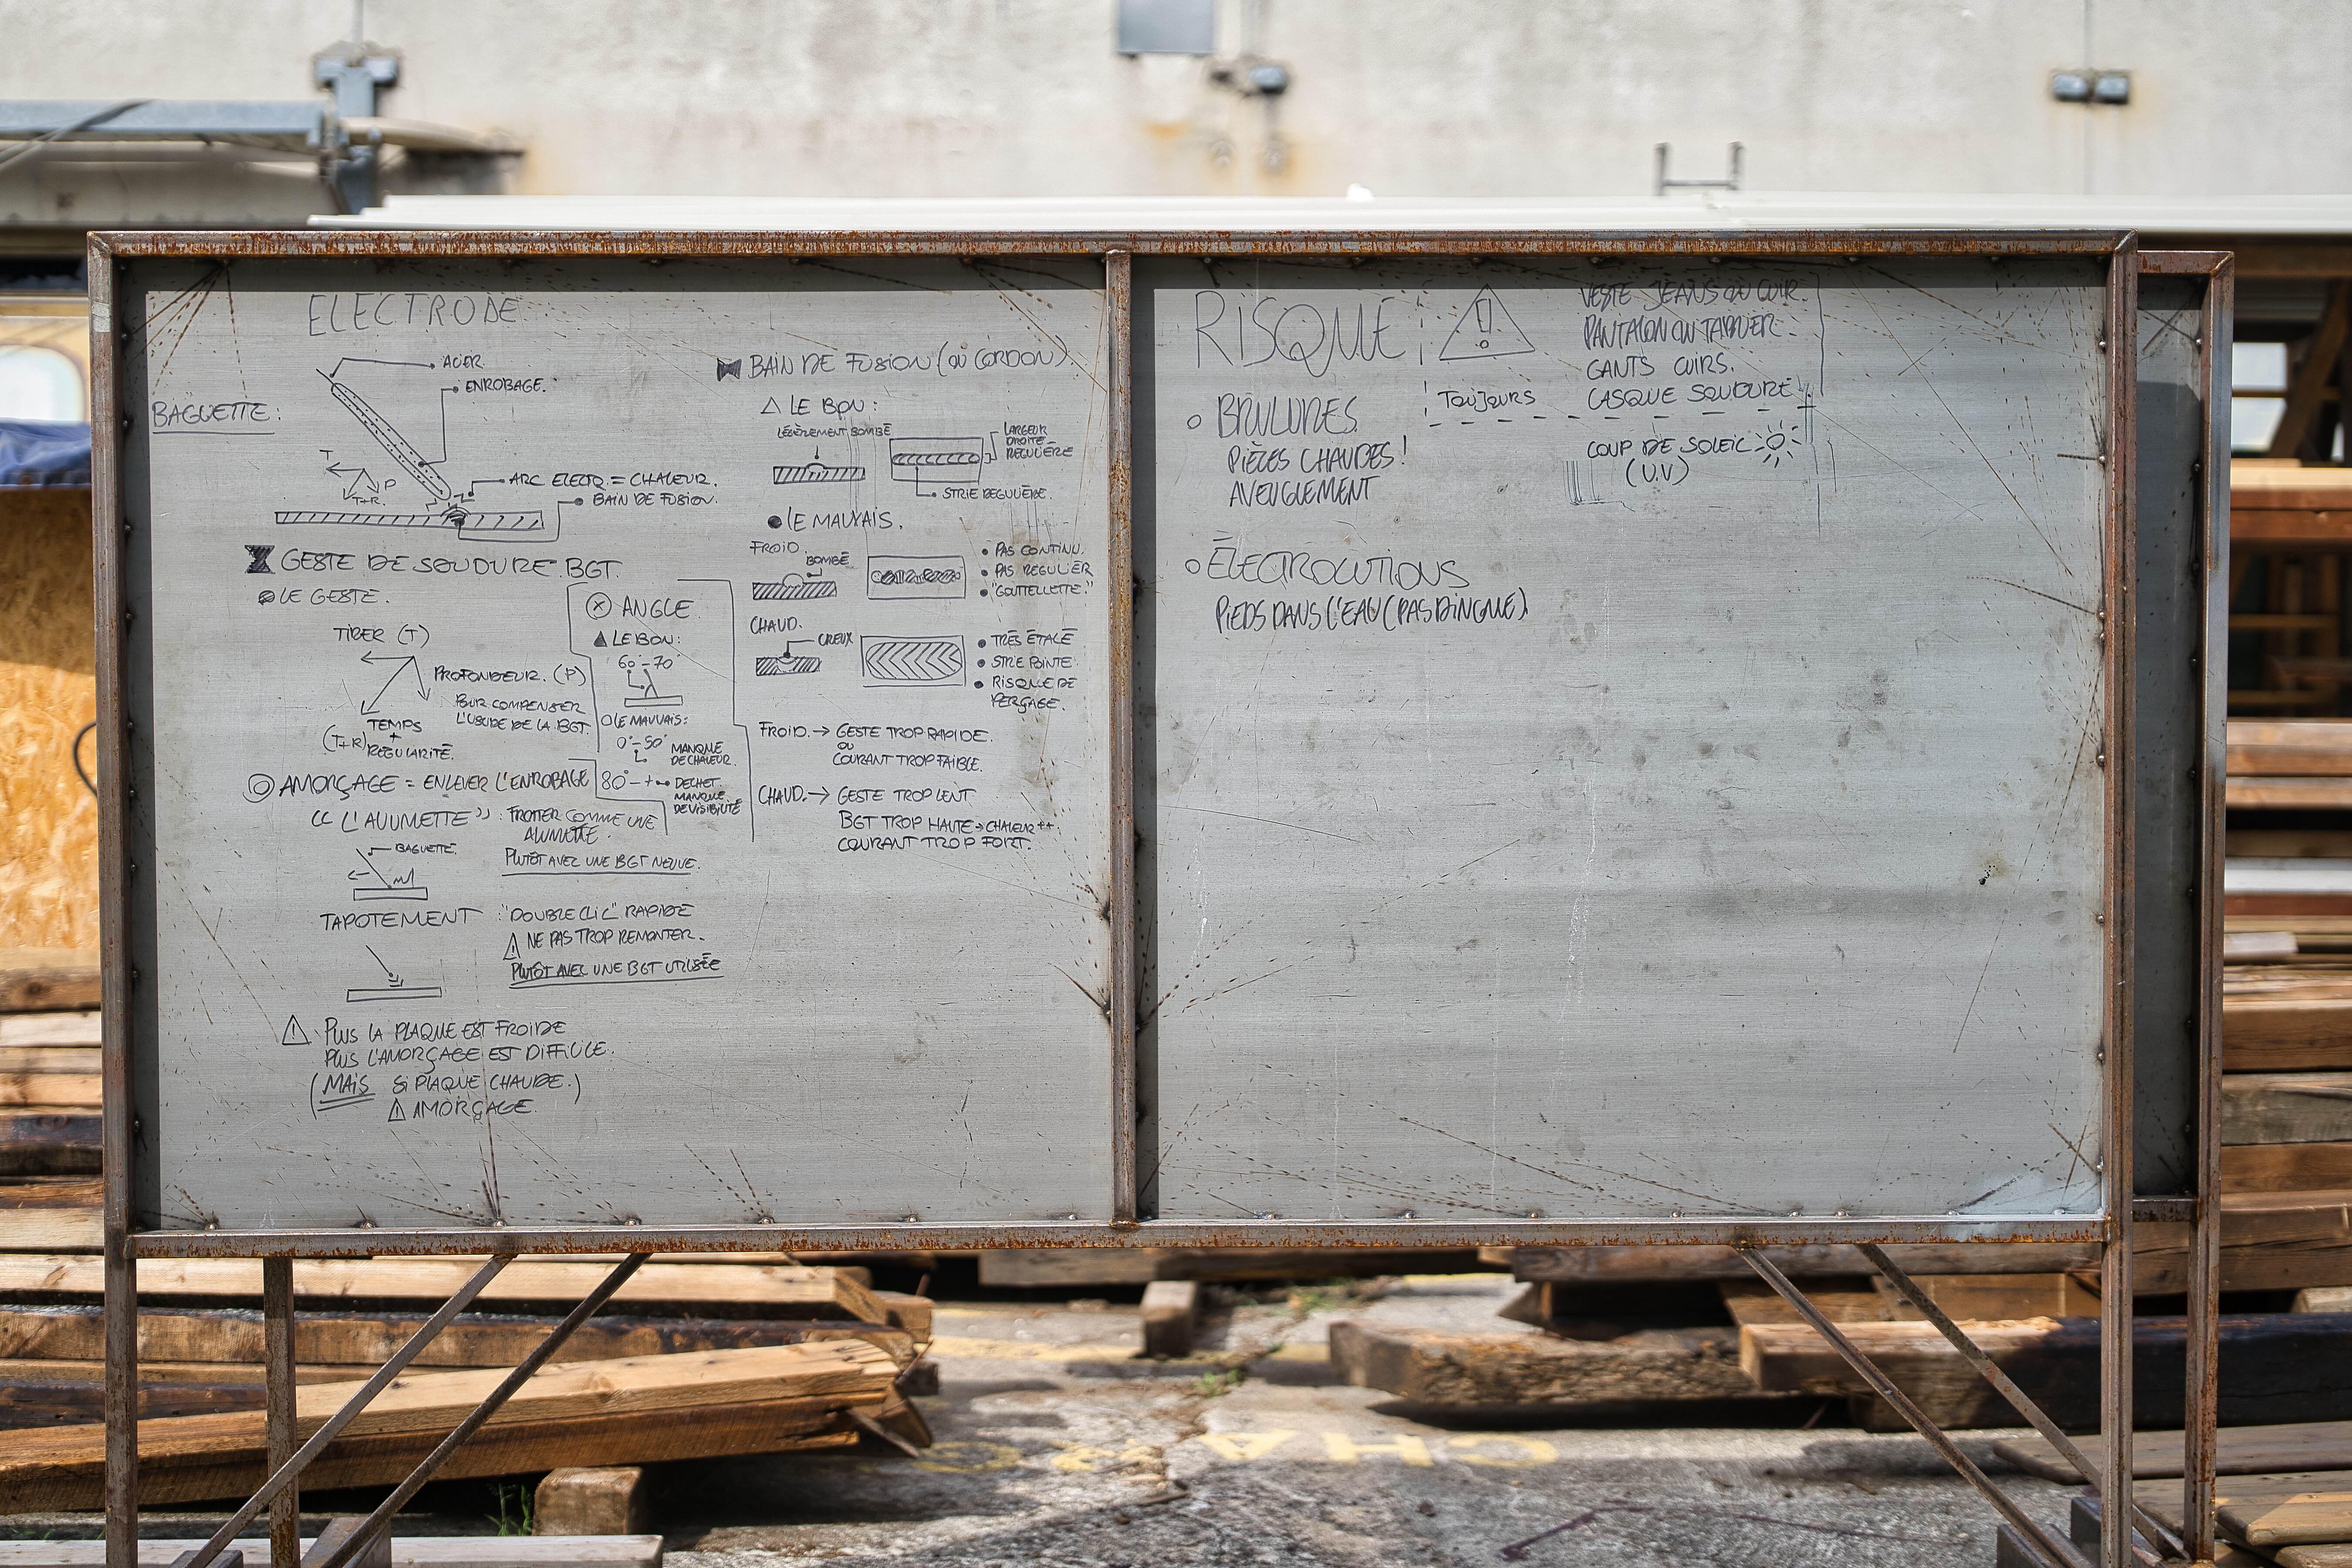 ELECTRODE
BAGUETTE:
ACIER
ENROBAGE.
T
P
T+R.
ARC ELECTR. = CHALEUR.
BAIN DE FUSION.
GESTE DE SOUDURE BGT.
LE GESTE.
TIRER (T)
PROFONDEUR. (P)
POUR COMPENSER
L'USURE DE LA BGT.
(T+R) TEMPS
+
REGULARITÉ.
X ANGLE
LE BON:
60°-70°
LE MAUVAIS:
0°-50°
MANQUE
DE CHALEUR.
80° - +
DECHET.
MANQUE
DE VISIBILITÉ
AMORÇAGE = ENLEVER L'ENROBAGE
"L'ALLUMETTE" : FROTTER COMME UNE
ALUMETTE.
PLUTÔT AVEC UNE BGT NEUVE.
BAGUETTE.
TAPOTEMENT : "DOUBLE CLIC" RAPIDE
! NE PAS TROP REMONTER.
PLUTÔT AVEC UNE BGT UTILISÉE
! PLUS LA PLAQUE EST FROIDE
PLUS L'AMORÇAGE EST DIFFICILE.
(MAIS SI PLAQUE CHAUDE.)
! AMORÇAGE.
BAIN DE FUSION (OU CORDON)
LE BON:
LÉGÈREMENT BOMBÉ
LARGEUR
DROITE
REGULIÈRE
STRIE REGULIÈRE.
LE MAUVAIS.
FROID.
BOMBÉ
• PAS CONTINU.
• PAS REGULIER
• "GOUTTELETTE."
CHAUD.
CREUX
• TRÈS ÉTALÉ
• STRIE POINTE
• RISQUE DE
PERÇAGE.
FROID. → GESTE TROP RAPIDE.
OU
COURANT TROP FAIBLE.
CHAUD. → GESTE TROP LENT
BGT TROP HAUTE → CHALEUR ++.
COURANT TROP FORT.
RISQUE !
TOUJOURS
VESTE JEANS OU CUIR.
PANTALON OU TABLIER
GANTS CUIRS.
CASQUE SOUDURE
BRULURES.
PIÈCES CHAUDES!
AVEUGLEMENT
COUP DE SOLEIL
(U.V)
ÉLECTROCUTIONS
PIEDS DANS L'EAU (PAS DINGUE)